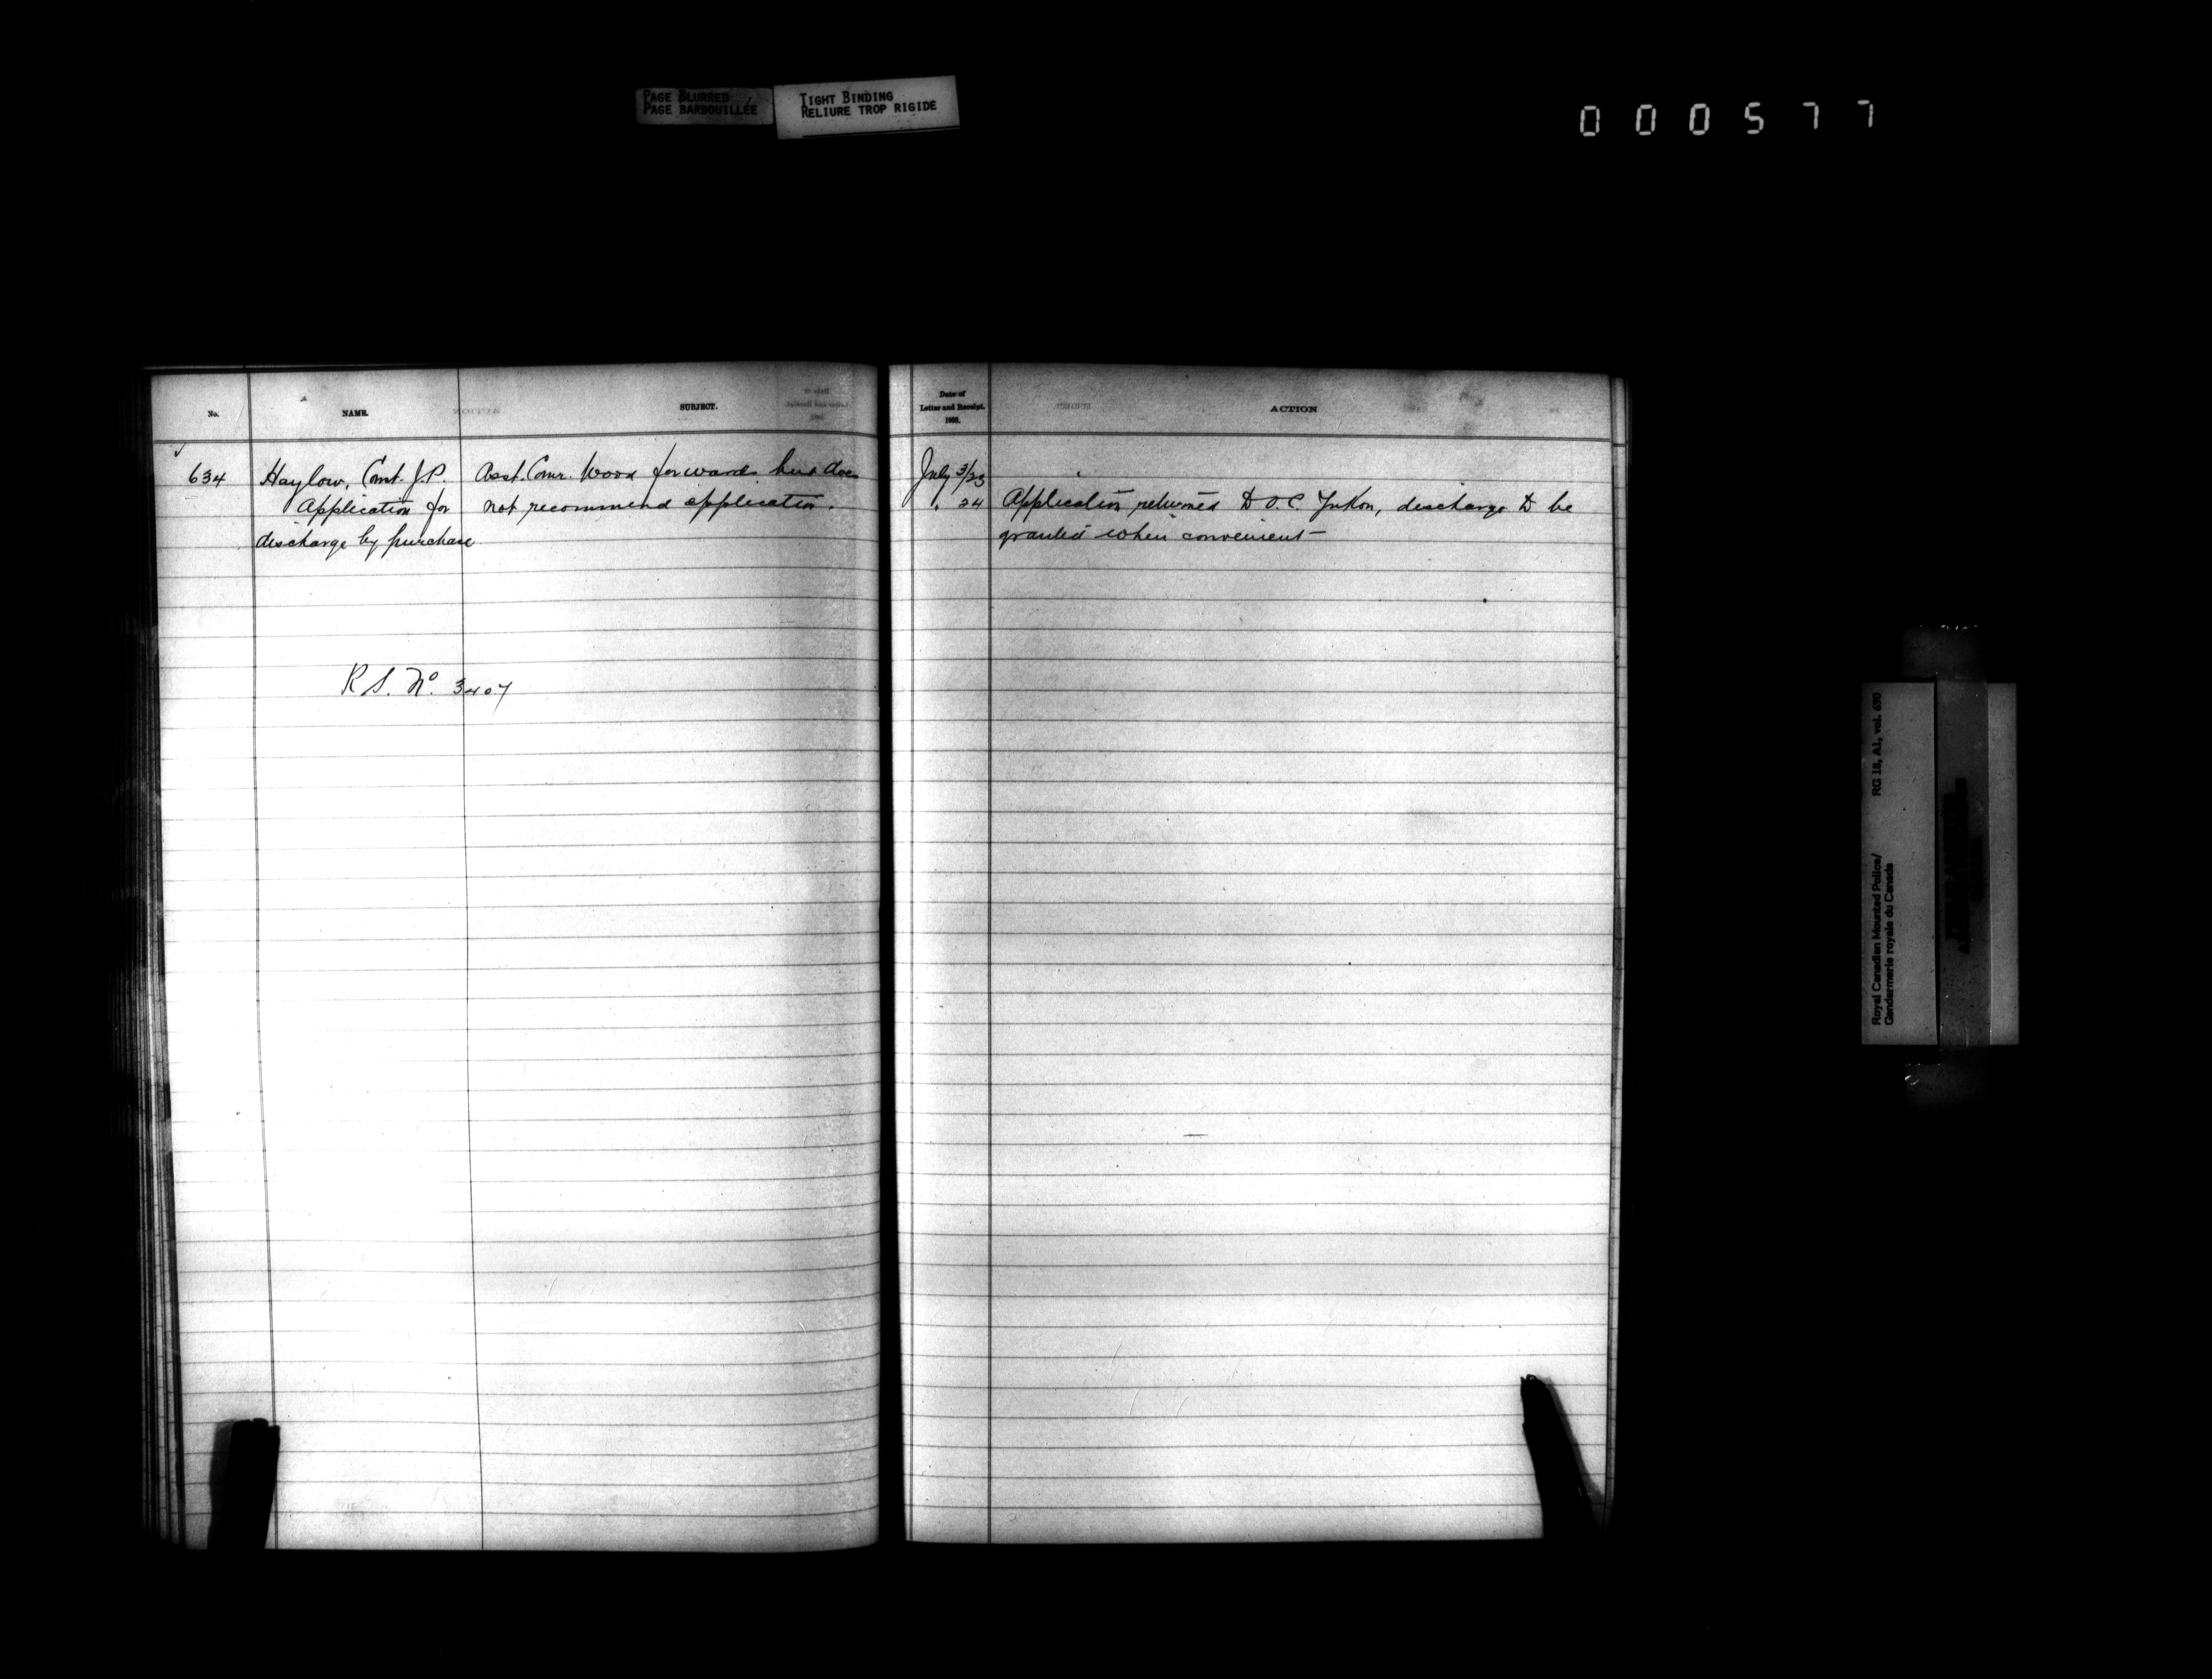 PAGE BLURRED
PAGE BARBOUILLÉE
TIGHT BINDING
RELIURE TROP RIGIDE
000577
No.
NAME.
SUBJECT.
Date of
Letter and Receipt.
ACTION
634
Haylow, Const. J.P.
Application for
discharge by purchase
Asst. Comr. Wood forwards but does
not recommend application.
R S. No. 3407
July 3/23
" 24
Application returned to O.C. Yukon, discharge to be
granted when convenient —
RG 18, A1, vol. 690
Royal Canadian Mounted Police/
Gendarmerie royale du Canada